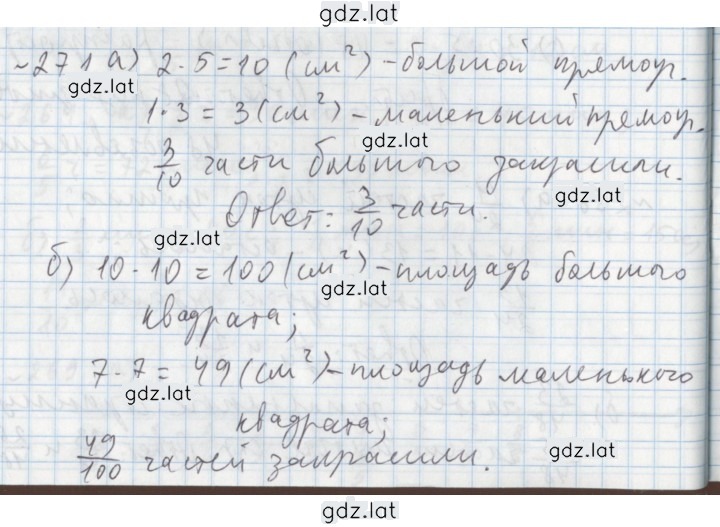 gdz.lat
№271 а) 2·5=10 (см²) – большой прямоуг.
gdz.lat
1·3 = 3 (см²) – маленький прямоуг.
gdz.lat
3/10 части большого закрасили.
gdz.lat
Ответ: 3/10 части.
gdz.lat
б) 10·10 = 100 (см²) – площадь большого
gdz.lat
квадрата;
gdz.lat
7·7 = 49 (см²) – площадь маленького
gdz.lat
квадрата;
gdz.lat
49/100 частей закрасили.
gdz.lat